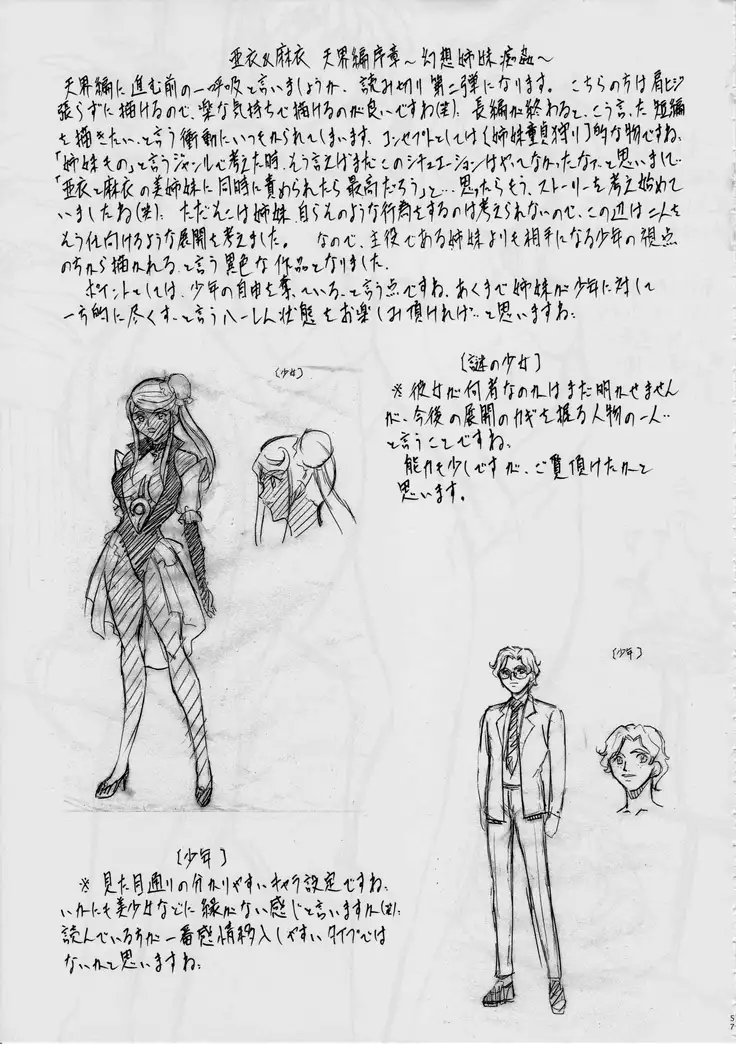 亜衣&麻衣 天界編序章～幻想姉妹痴姦～
天界編に進む前の一呼吸と言いましょうか、読み切り第二弾になります。こちらの方は肩ヒジ
張らずに描けるので、楽な気持ちで描けるのが良いですね(笑)。長編が終わると、こう言った短編
を描きたい、と言う衝動にいつもかられてしまいます。コンセプトとしては〔姉妹童貞狩り〕的な物ですね。
「姉妹もの」と言うジャンルで考えた時、そう言えばまだこのシチュエーションはやってなかったな…と思いまして…
「亜衣と麻衣の美姉妹に同時に責められたら最高だろう」と…思ったらもう、ストーリーを考え始めて
いましたね(笑)。ただそこは姉妹、自らそのような行為をするのは考えられないので、この辺は二人を
そう仕向けるような展開を考えました。 なので、主役である姉妹よりも相手になる少年の視点
の方から描かれる、と言う異色な作品となりました。
ポイントとしては、少年の自由を奪っている、と言う点ですね。あくまで姉妹が少年に対して
一方的に尽くす、と言うハーレム状態をお楽しみ頂ければ…と思いますね。
〔少女〕
〔謎の少女〕
※彼女が何者なのかはまだ明かせません
が、今後の展開のカギを握る人物の一人…
と言うことですね。
能力も少しですが、ご覧頂けたかと
思います。
〔少年〕
〔少年〕
※見た目通りの分かりやすいキャラ設定ですね。
いかにも美少女などに縁がない感じと言いますか(笑)。
読んでいる方が一番感情移入しやすいタイプでは
ないかと思いますね。
57